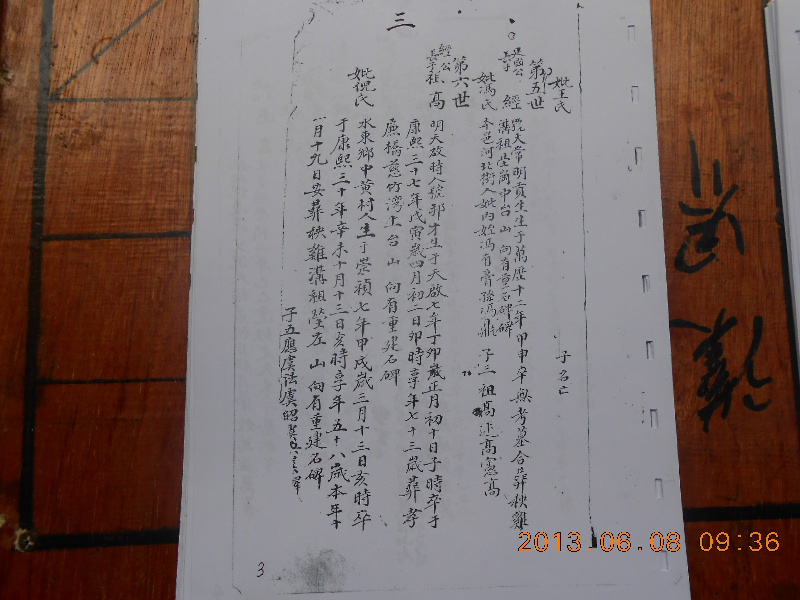 妣王氏
子名亡
第五世
長子
經
號天常明貢生生于萬歷十二年甲申卒無考墓合葬秧雞
溝祖塋蘭中台山向有重石碑
妣馮氏
本邑河北街人
子三祖高述高憲高
第六世
經公
長子祖高
明天啟時人號郭才生于天啟七年丁卯歲正月初十日子時卒于
康熙三十七年戊寅歲四月初二日卯時享年七十三歲葬孝
廉橋慈竹灣上台山向有重建石碑
妣倪氏
水東鄉中黃村人生于崇禎七年甲戌歲三月十三日亥時卒
于康熙三十年辛未十月十三日亥時享年五十八歲本年十
一月十九日安葬秧雞溝祖塋左山向有重建石碑
子五應虞法虞昭
三
3
2013.06.08 09:36